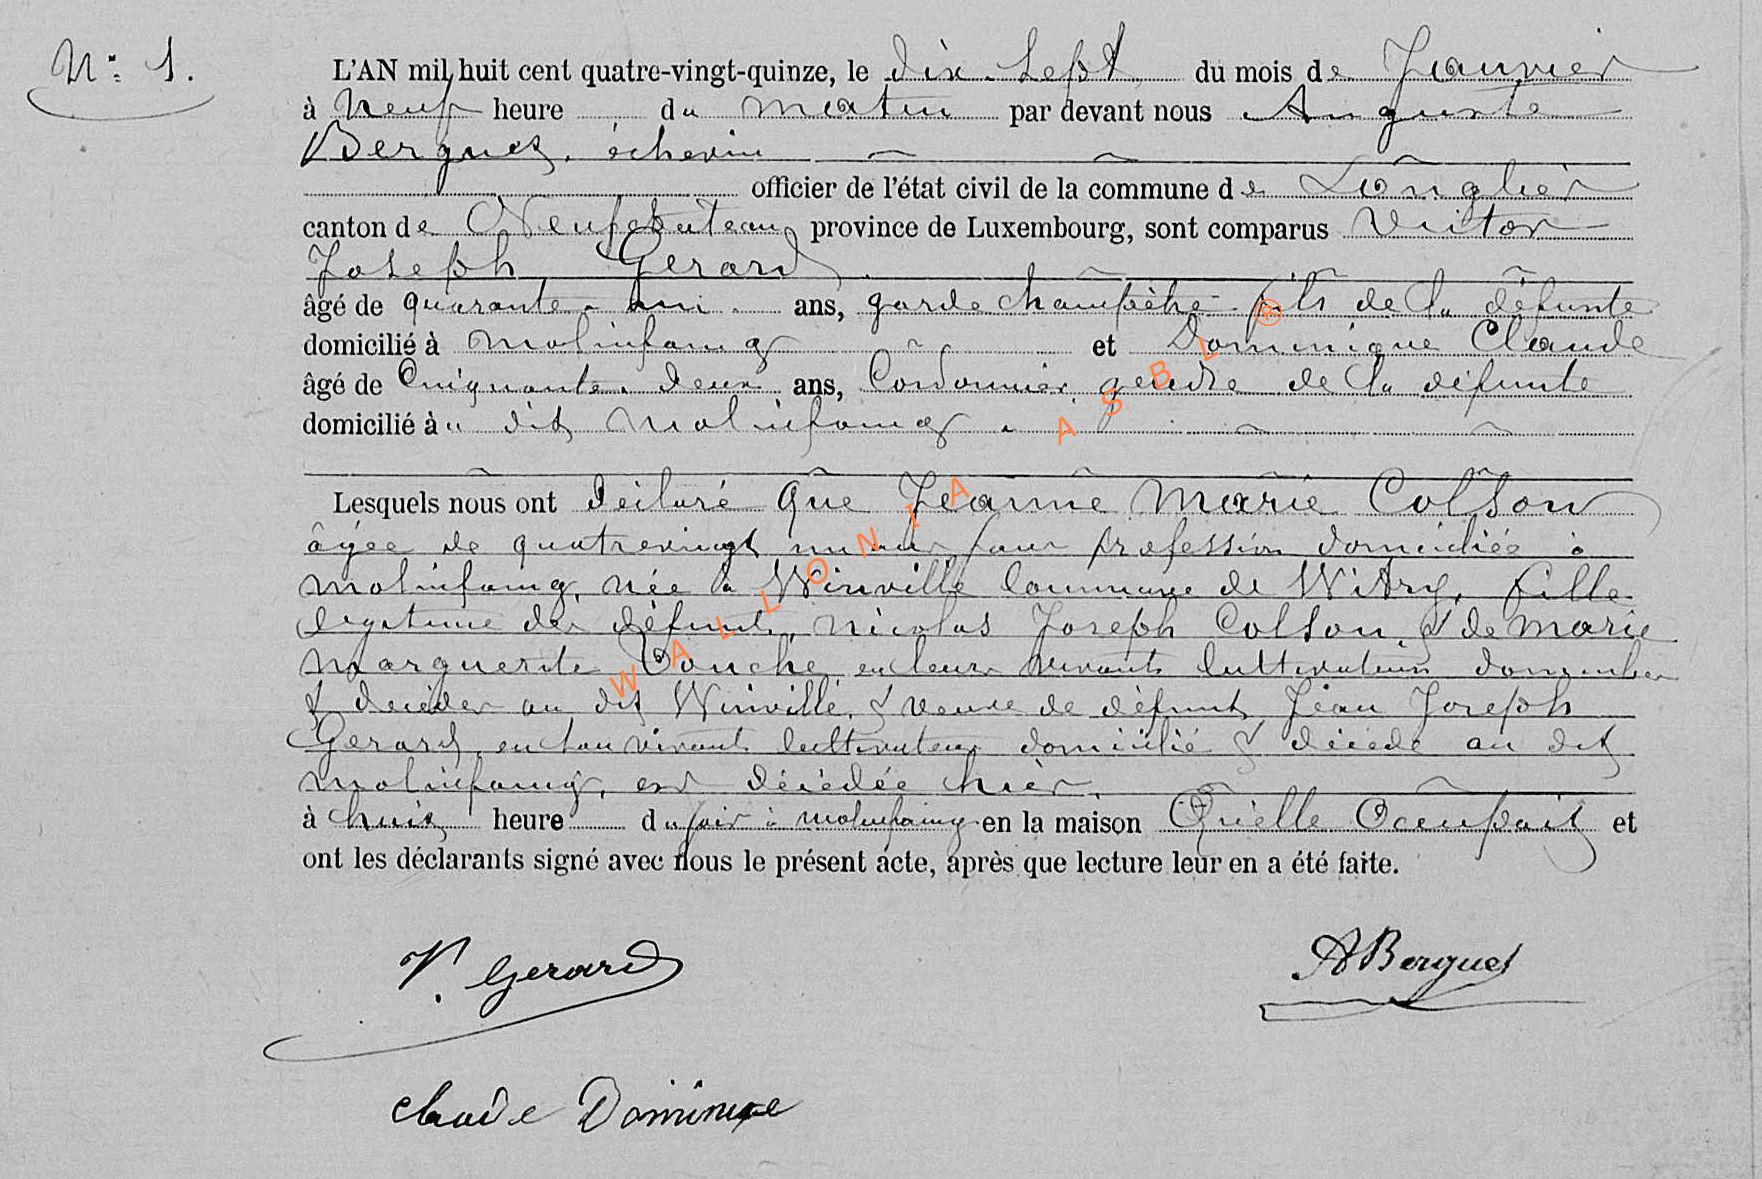 N° 1.
L'AN mil huit cent quatre-vingt-quinze, le dix Sept du mois de Janvier
à neuf heure du matin par devant nous Auguste
Berguet, échevin
officier de l'état civil de la commune de Longlier
canton de Neufchâteau province de Luxembourg, sont comparus Victor
Joseph Gerard
âgé de quarante-un ans, garde champêtre fils de la défunte
domicilié à Molinfaing et Dominique Claude
âgé de Cinquante-deux ans, Cordonnier, gendre de la défunte
domicilié à u dit Molinfaing
Lesquels nous ont déclaré que Jeanne Marie Colson
âgée de quatrevingt un ans, sans profession domiciliée à
Molinfaing, née à Winville Commune de Witry, fille
légitime des défunts, Nicolas Joseph Colson, & de Marie
Marguerite Bouche, en leurs vivants Cultivateurs domiciliés
& décédés au dit Winville, & veuve de défunt, Jean Joseph
Gerard, en son vivant Cultivateur domicilié & décédé au dit
Molinfaing, est décédée hier.
à huit heure du soir à Molinfaing en la maison Qu'elle Occupait et
ont les déclarants signé avec nous le présent acte, après que lecture leur en a été faite.
V. Gerard
A Berguet
Claude Dominique
WALLONIA ASBL ®